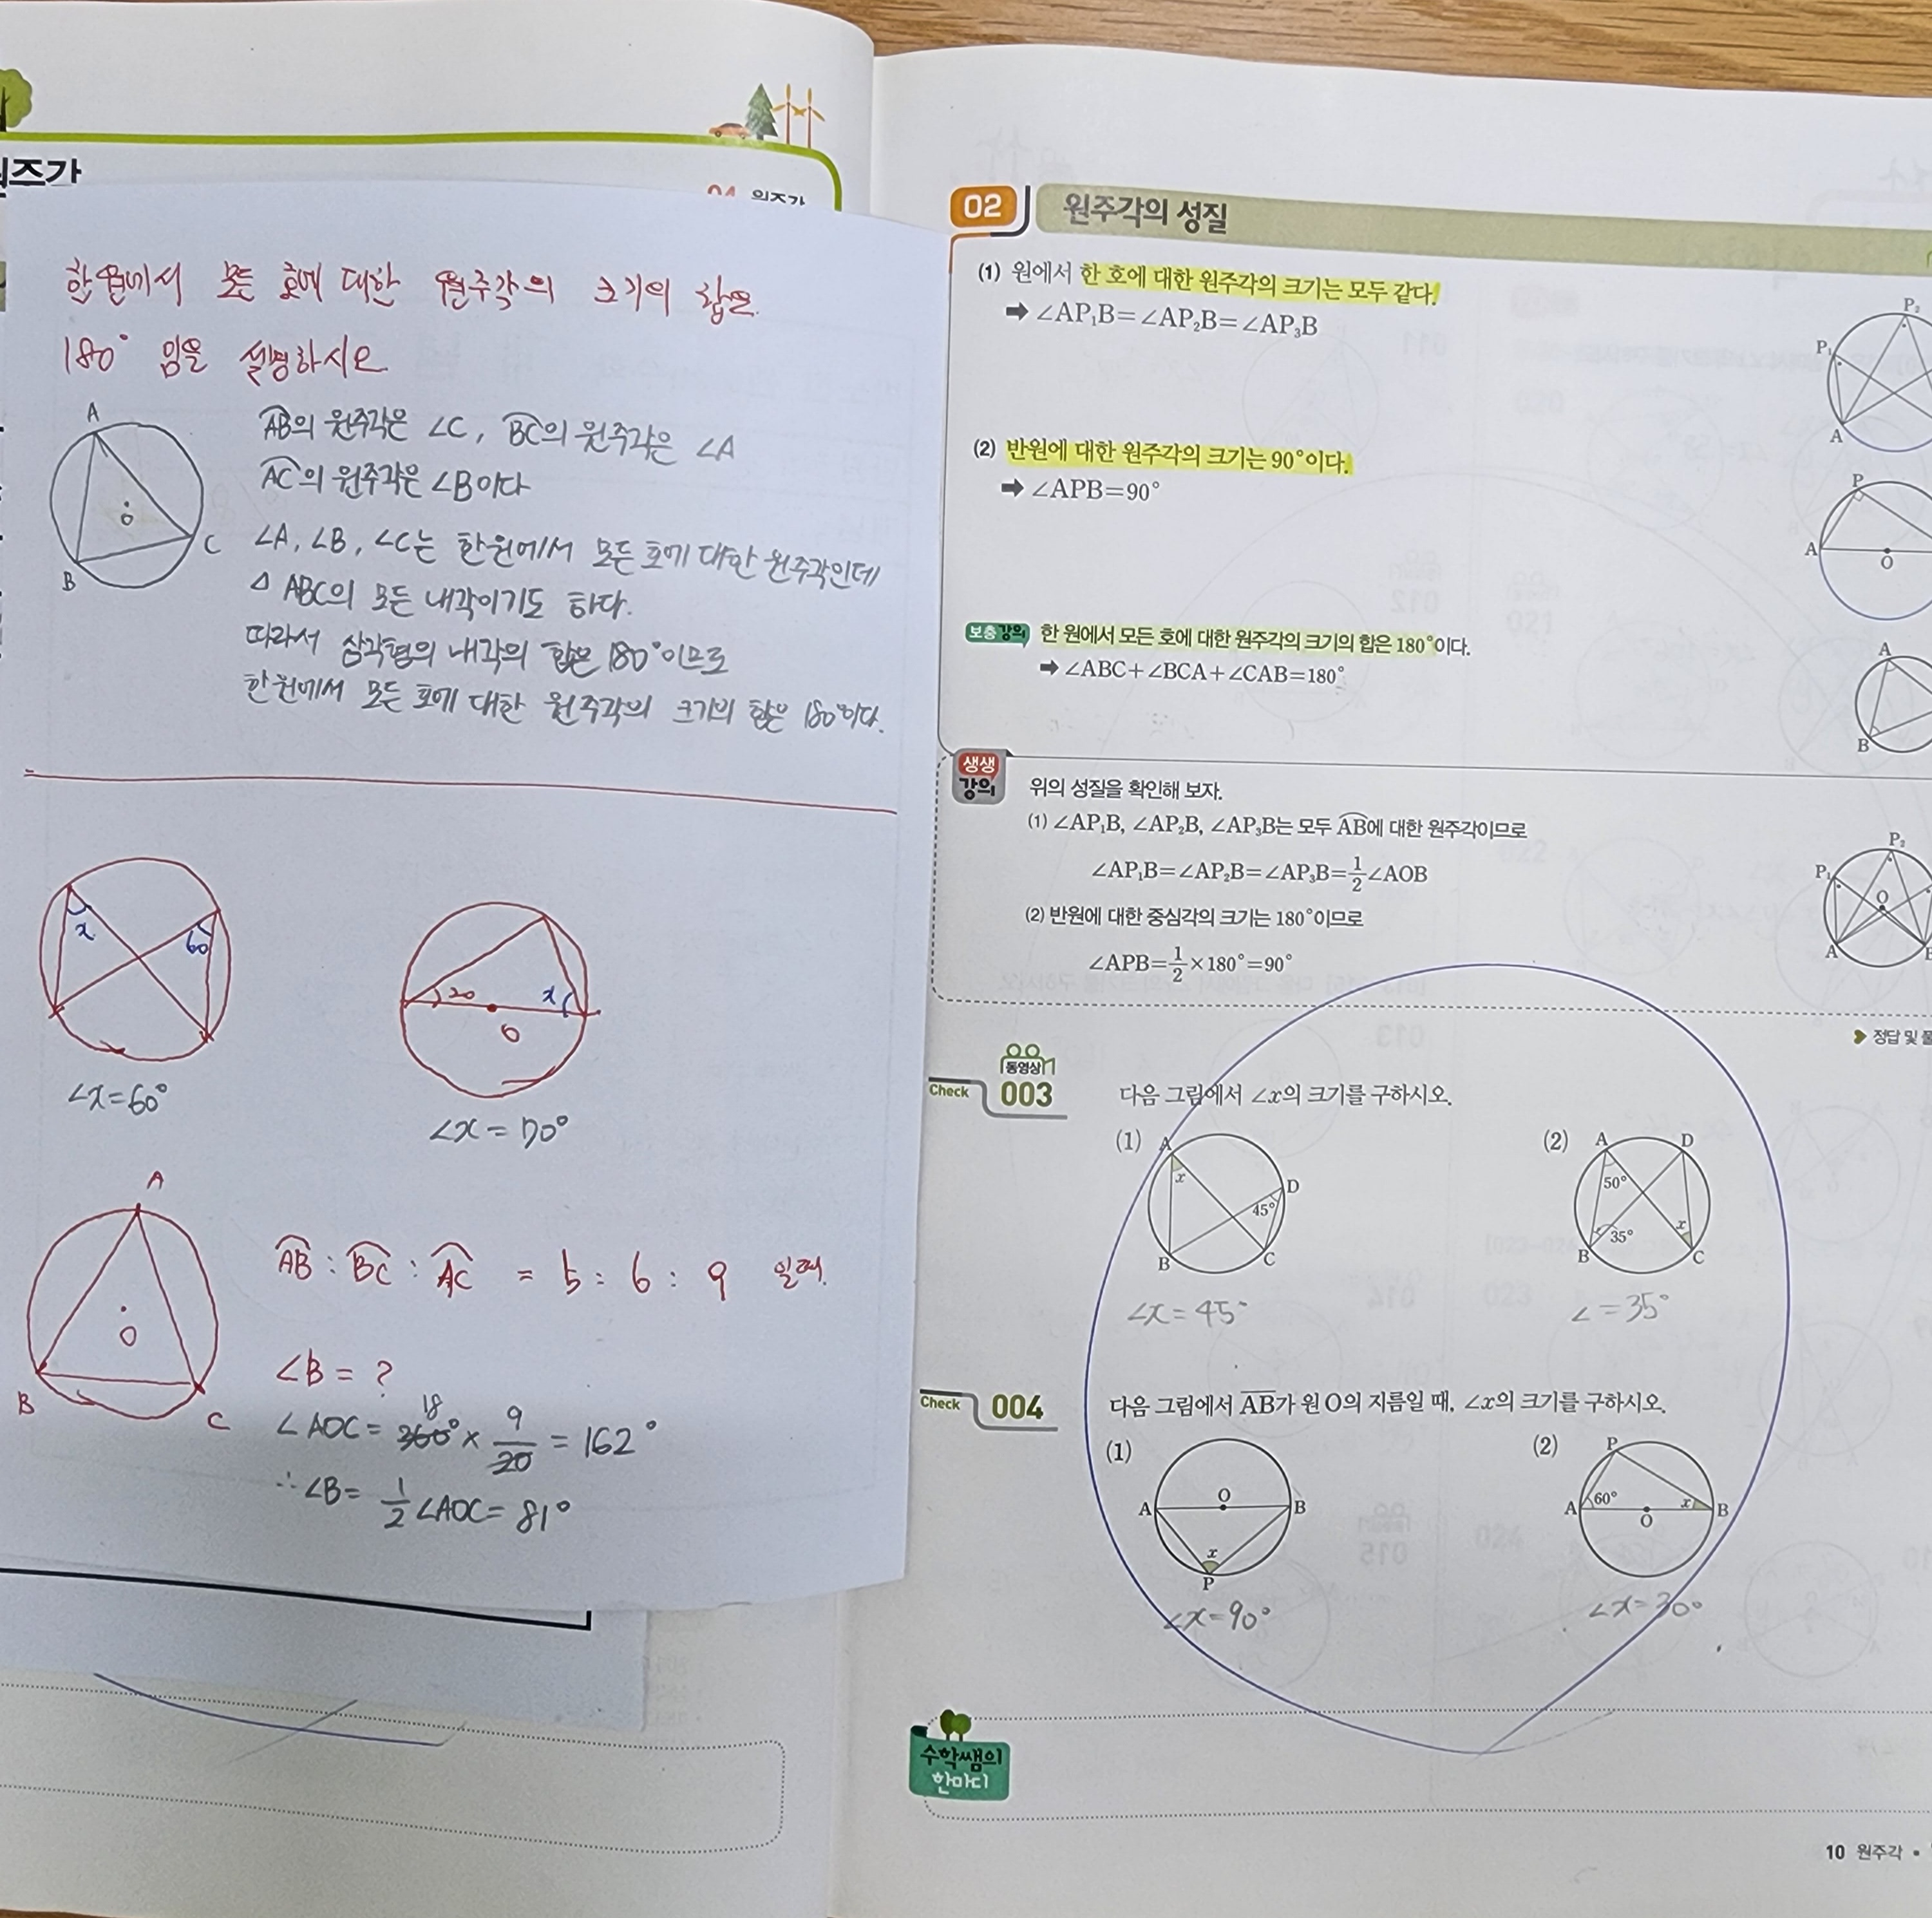 원주각
04 원주각
한 원에서 모든 호에 대한 원주각의 크기의 합은
180° 임을 설명하시오
A
B
C
O
AB의 원주각은 ∠C, BC의 원주각은 ∠A
AC의 원주각은 ∠B이다
∠A, ∠B, ∠C는 한원에서 모든 호에 대한 원주각인데
△ABC의 모든 내각이기도 하다.
따라서 삼각형의 내각의 합은 180°이므로
한원에서 모든 호에 대한 원주각의 크기의 합은 180°이다.
x
60
∠x=60°
20
x
O
∠x=70°
A
B
C
O
AB : BC : AC = 5 : 6 : 9 일때.
∠B = ?
18
∠AOC = 360° × 9/20 = 162°
∴ ∠B = 1/2 ∠AOC = 81°
02 원주각의 성질
(1) 원에서 한 호에 대한 원주각의 크기는 모두 같다.
➡ ∠AP₁B=∠AP₂B=∠AP₃B
P₂
P₁
A
(2) 반원에 대한 원주각의 크기는 90°이다.
➡ ∠APB=90°
P
A
O
보충강의 한 원에서 모든 호에 대한 원주각의 크기의 합은 180°이다.
➡ ∠ABC+∠BCA+∠CAB=180°
A
B
생생강의
위의 성질을 확인해 보자.
(1) ∠AP₁B, ∠AP₂B, ∠AP₃B는 모두 AB에 대한 원주각이므로
∠AP₁B=∠AP₂B=∠AP₃B=1/2∠AOB
(2) 반원에 대한 중심각의 크기는 180°이므로
∠APB=1/2×180°=90°
P₂
P₁
O
A
정답 및 풀
동영상
Check 003 다음 그림에서 ∠x의 크기를 구하시오.
(1)
A
x
D
45°
B
C
∠x=45°
(2)
A
D
50°
35°
x
B
C
∠=35°
Check 004 다음 그림에서 AB가 원 O의 지름일 때, ∠x의 크기를 구하시오.
(1)
O
A
B
x
P
∠x=90°
(2)
P
A
60°
x
B
O
∠x=30°
수학쌤의
한마디
10 원주각 •